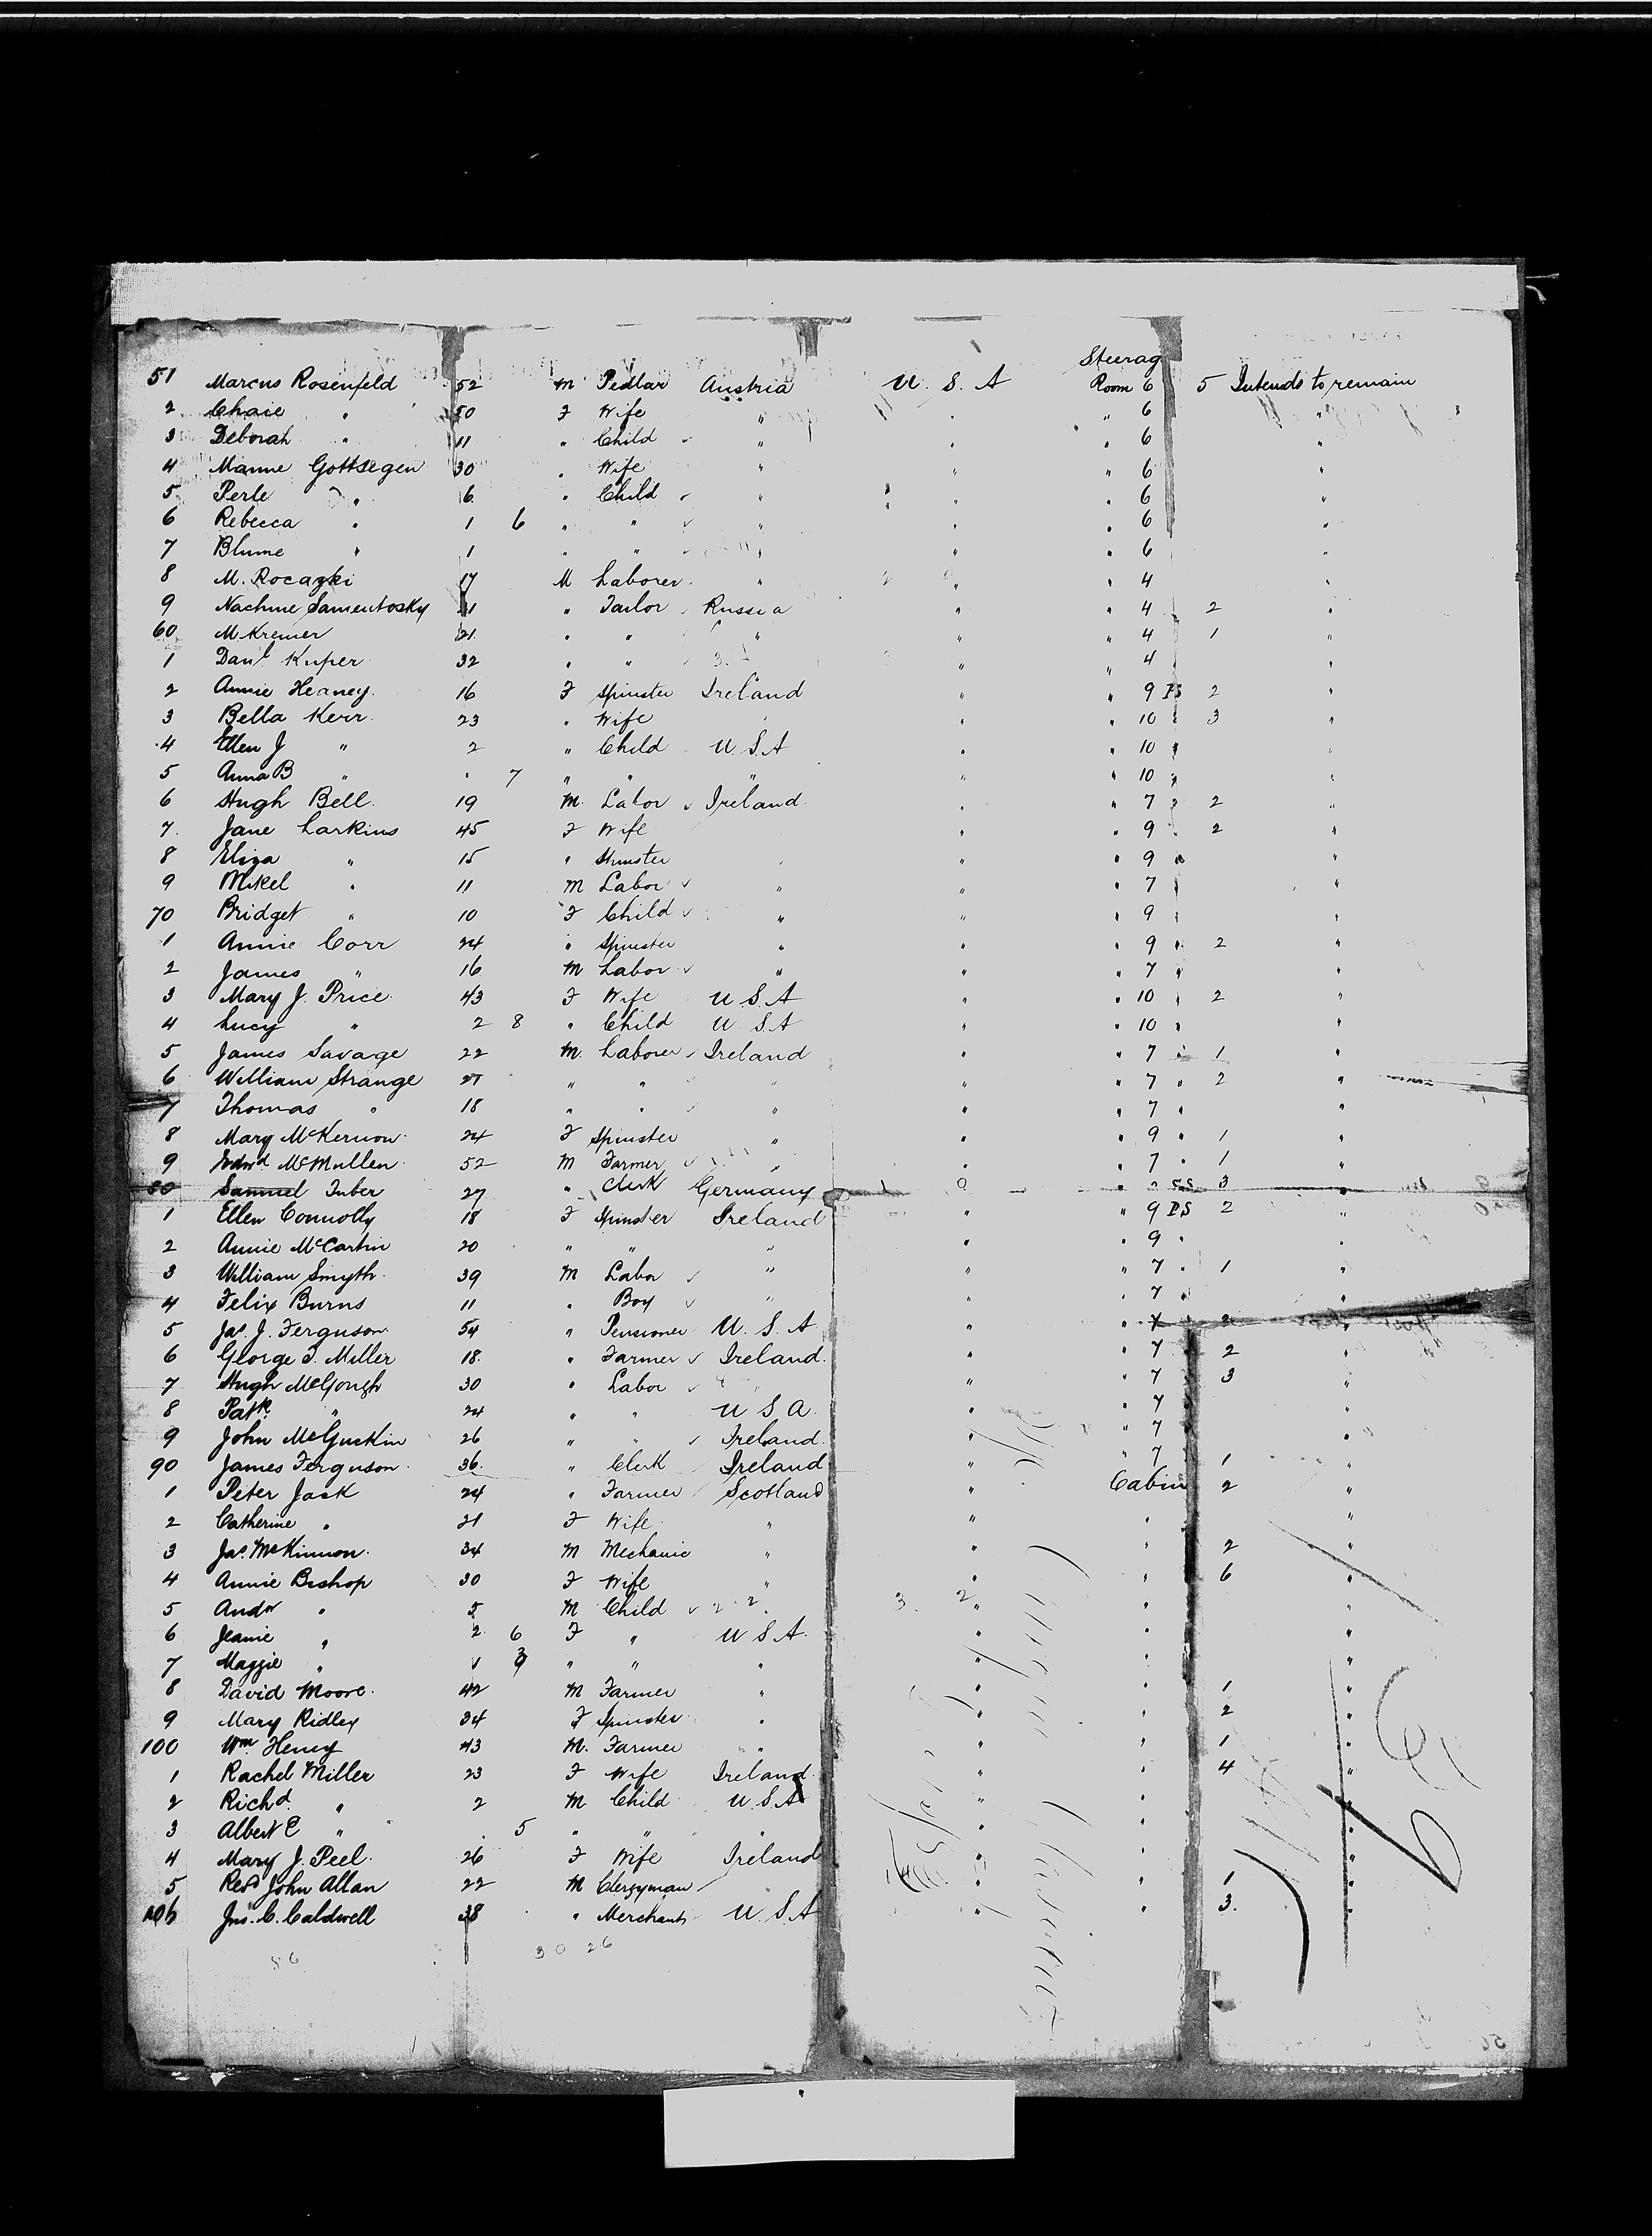 Steerag
51 Marcus Rosenfeld 52 M Pedlar Austria U. S. A Room 6 5 Intends to remain
2 Chaie " 50 F Wife " " " 6 "
3 Deborah " 11 " Child " " " 6 "
4 Manne Gottsegen 30 " Wife " " " 6 "
5 Perle " 6 " Child " " " 6 "
6 Rebecca " 1 6 " " " " " 6 "
7 Blume " 1 " " " " " 6 "
8 M. Rocazki 17 M Laborer " " " 4 "
9 Nachme Samentosky 21 " Tailor Russia " " 4 2 "
60 M Kremer 21 " " " " " 4 1 "
1 Danl Kuper 32 " " " " " 4 "
2 Annie Heaney 16 F Spinster Ireland " " 9 PS 2 "
3 Bella Kerr 23 " Wife " " " 10 " 3 "
4 Ellen J " 2 " Child U.S.A " " 10 " "
5 Anna B " " 7 " " " " " 10 " "
6 Hugh Bell 19 M. Labor Ireland " " 7 " 2 "
7 Jane Larkins 45 F Wife " " 9 " 2 "
8 Eliza " 15 " Spinster " " " 9 " "
9 Mikel " 11 M Labor " " " 7 " "
70 Bridget " 10 F Child " " " 9 " "
1 Annie Corr 24 " Spinster " " " 9 " 2 "
2 James " 16 M Labor " " " 7 " "
3 Mary J. Price 43 F Wife U.S.A " " 10 " 2 "
4 Lucy " 2 8 " Child U.S.A " " 10 " "
5 James Savage 22 M. Laborer Ireland " " 7 " 1 "
6 William Strange 21 " " " " " 7 " 2 "
7 Thomas " 18 " " " " " 7 " "
8 Mary McKernon 24 F Spinster " " " 9 " 1 "
9 Edwd McMullen 52 M Farmer " " " 7 " 1 "
80 Samuel Tuber 27 " Clerk Germany " SS 3 "
1 Ellen Connolly 18 F Spinster Ireland " " 9 PS 2 "
2 Annie McCartin 20 " " " " " 9 " "
3 William Smyth 39 M Labor " " " 7 " 1 "
4 Felix Burns 11 " Boy " " " 7 " "
5 Jas. J. Ferguson 54 " Pensioner U. S. A " " 7 " 2 "
6 George T. Miller 18 " Farmer Ireland " " 7 2 "
7 Hugh McGough 30 " Labor " " " 7 3 "
8 Patk " 24 " " U S A " " 7 "
9 John McGuckin 26 " " Ireland " " 7 "
90 James Ferguson 36 " Clerk Ireland " " 7 1 "
1 Peter Jack 24 " Farmer Scotland " Cabin 2 "
2 Catherine " 21 F Wife " " " "
3 Jas. McKinnon 34 M Mechanic " " " 2 "
4 Annie Bishop 30 F Wife " " " 6 "
5 Andw " 5 M Child 3 2 " " "
6 Jeanie " 2 6 F " U S A " " "
7 Maggie " 1 3 " " " " " "
8 David Moore 42 M Farmer " " " 1 "
9 Mary Ridley 34 F Spinster " " " 2 "
100 Wm Henry 43 M. Farmer " " " 1 "
1 Rachel Miller 23 F Wife Ireland " " 4 "
2 Richd. " 2 M Child U.S.A " " "
3 Albert E " . 5 " " " " " "
4 Mary J. Peel 26 F Wife Ireland " " "
5 Revd John Allan 22 M Clergyman " " " 1 "
106 Jno. C. Caldwell 38 " Merchant U.S.A " " 3. "
86 30 26